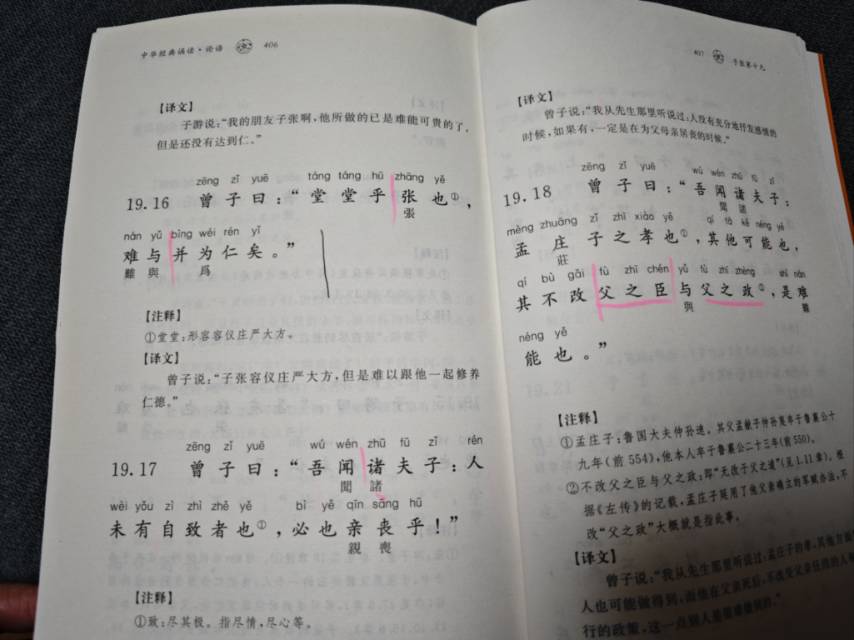 中华经典诵读·论语 406
【译文】
子游说：“我的朋友子张啊，他所做的已是难能可贵的了，
但是还没有达到仁。”
zēng zǐ yuē táng táng hū zhāng yě
19.16 曾子曰：“堂堂乎张也①，
張
nán yǔ bìng wéi rén yǐ
难与并为仁矣。”
難 與 爲
【注释】
①堂堂：形容容仪庄严大方。
【译文】
曾子说：“子张容仪庄严大方，但是难以跟他一起修养
仁德。”
zēng zǐ yuē wú wén zhū fū zǐ rén
19.17 曾子曰：“吾闻诸夫子：人
聞 諸
wèi yǒu zì zhì zhě yě bì yě qīn sāng hū
未有自致者也①，必也亲丧乎！”
親 喪
【注释】
①致：尽其极。指尽情，尽心等。
407 子张第十九
【译文】
曾子说：“我从先生那里听说过：人没有充分地抒发感情的
时候，如果有，一定是在为父母亲居丧的时候。”
zēng zǐ yuē wú wén zhū fū zǐ
19.18 曾子曰：“吾闻诸夫子：
聞 諸
mèng zhuāng zǐ zhī xiào yě qí tā kě néng yě
孟庄子之孝也①，其他可能也，
莊
qí bù gǎi fù zhī chén yǔ fù zhī zhèng shì nán
其不改父之臣与父之政②，是难
與 難
néng yě
能也。”
【注释】
①孟庄子：鲁国大夫仲孙速。其父孟献子仲孙蔑卒于鲁襄公十
九年（前554），他本人卒于鲁襄公二十三年（前550）。
②不改父之臣与父之政：即“无改于父之道”（见1.11章）。根
据《左传》的记载，孟庄子展用了他父亲确立的军赋办法，不
改“父之政”大概就是指此事。
【译文】
曾子说：“我从先生那里听说过，孟庄子的孝，其他方面
人也可能做得到，而他在父亲死后，不改变父亲任用的人和
行的政策，这一点别人是很难做到的。”